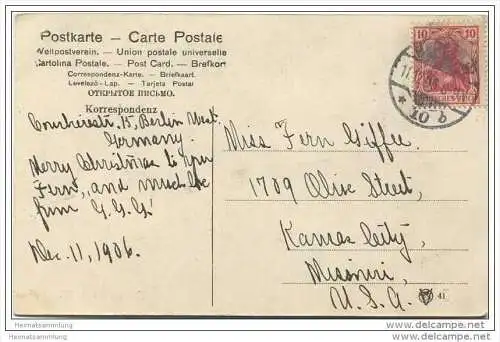 Postkarte – Carte Postale
Weltpostverein. – Union postale universelle
Cartolina Postale. – Post Card. – Brefkort
Correspondenz-Karte. – Briefkaart.
Levelező-Lap. – Tarjeta Postal
ОТКРЫТОЕ ПИСЬМО.
Korrespondenz
15, Berlin West.
Germany.
Merry Christmas to you
Fern, and much love
from G.G.G.
Dec. 11, 1906.
Miss Fern Giffee.
1709 Olive Street,
Kansas City,
Missouri,
U.S.A.
10 10
10 b
41
Heimatsammlung
Heimatsammlung